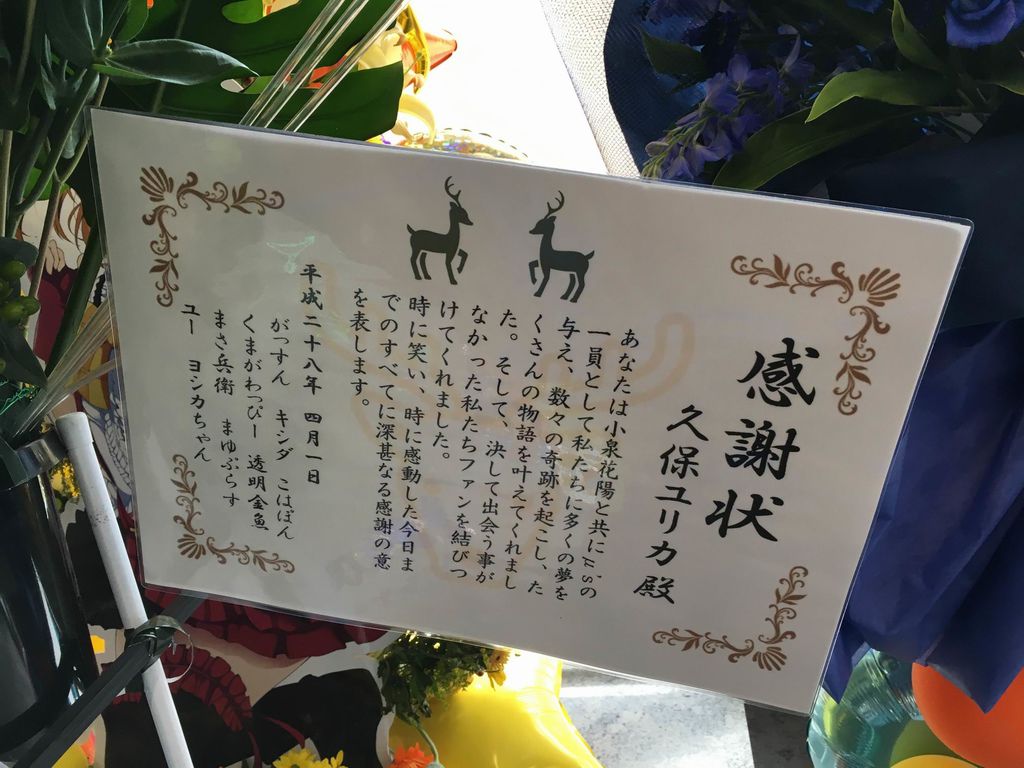 感謝状
久保ユリカ 殿
あなたは小泉花陽と共にμ'sの
一員として私たちに多くの夢を
与え、数々の奇跡を起こし、た
くさんの物語を叶えてくれまし
た。そして、決して出会う事が
なかった私たちファンを結びつ
けてくれました。
時に笑い、時に感動した今日ま
でのすべてに深甚なる感謝の意
を表します。
平成二十八年 四月一日
がっすん キシダ こはばん
くまがわっぴー 透明金魚
まさ兵衛 まゆぷらす
ユー ヨシカちゃん